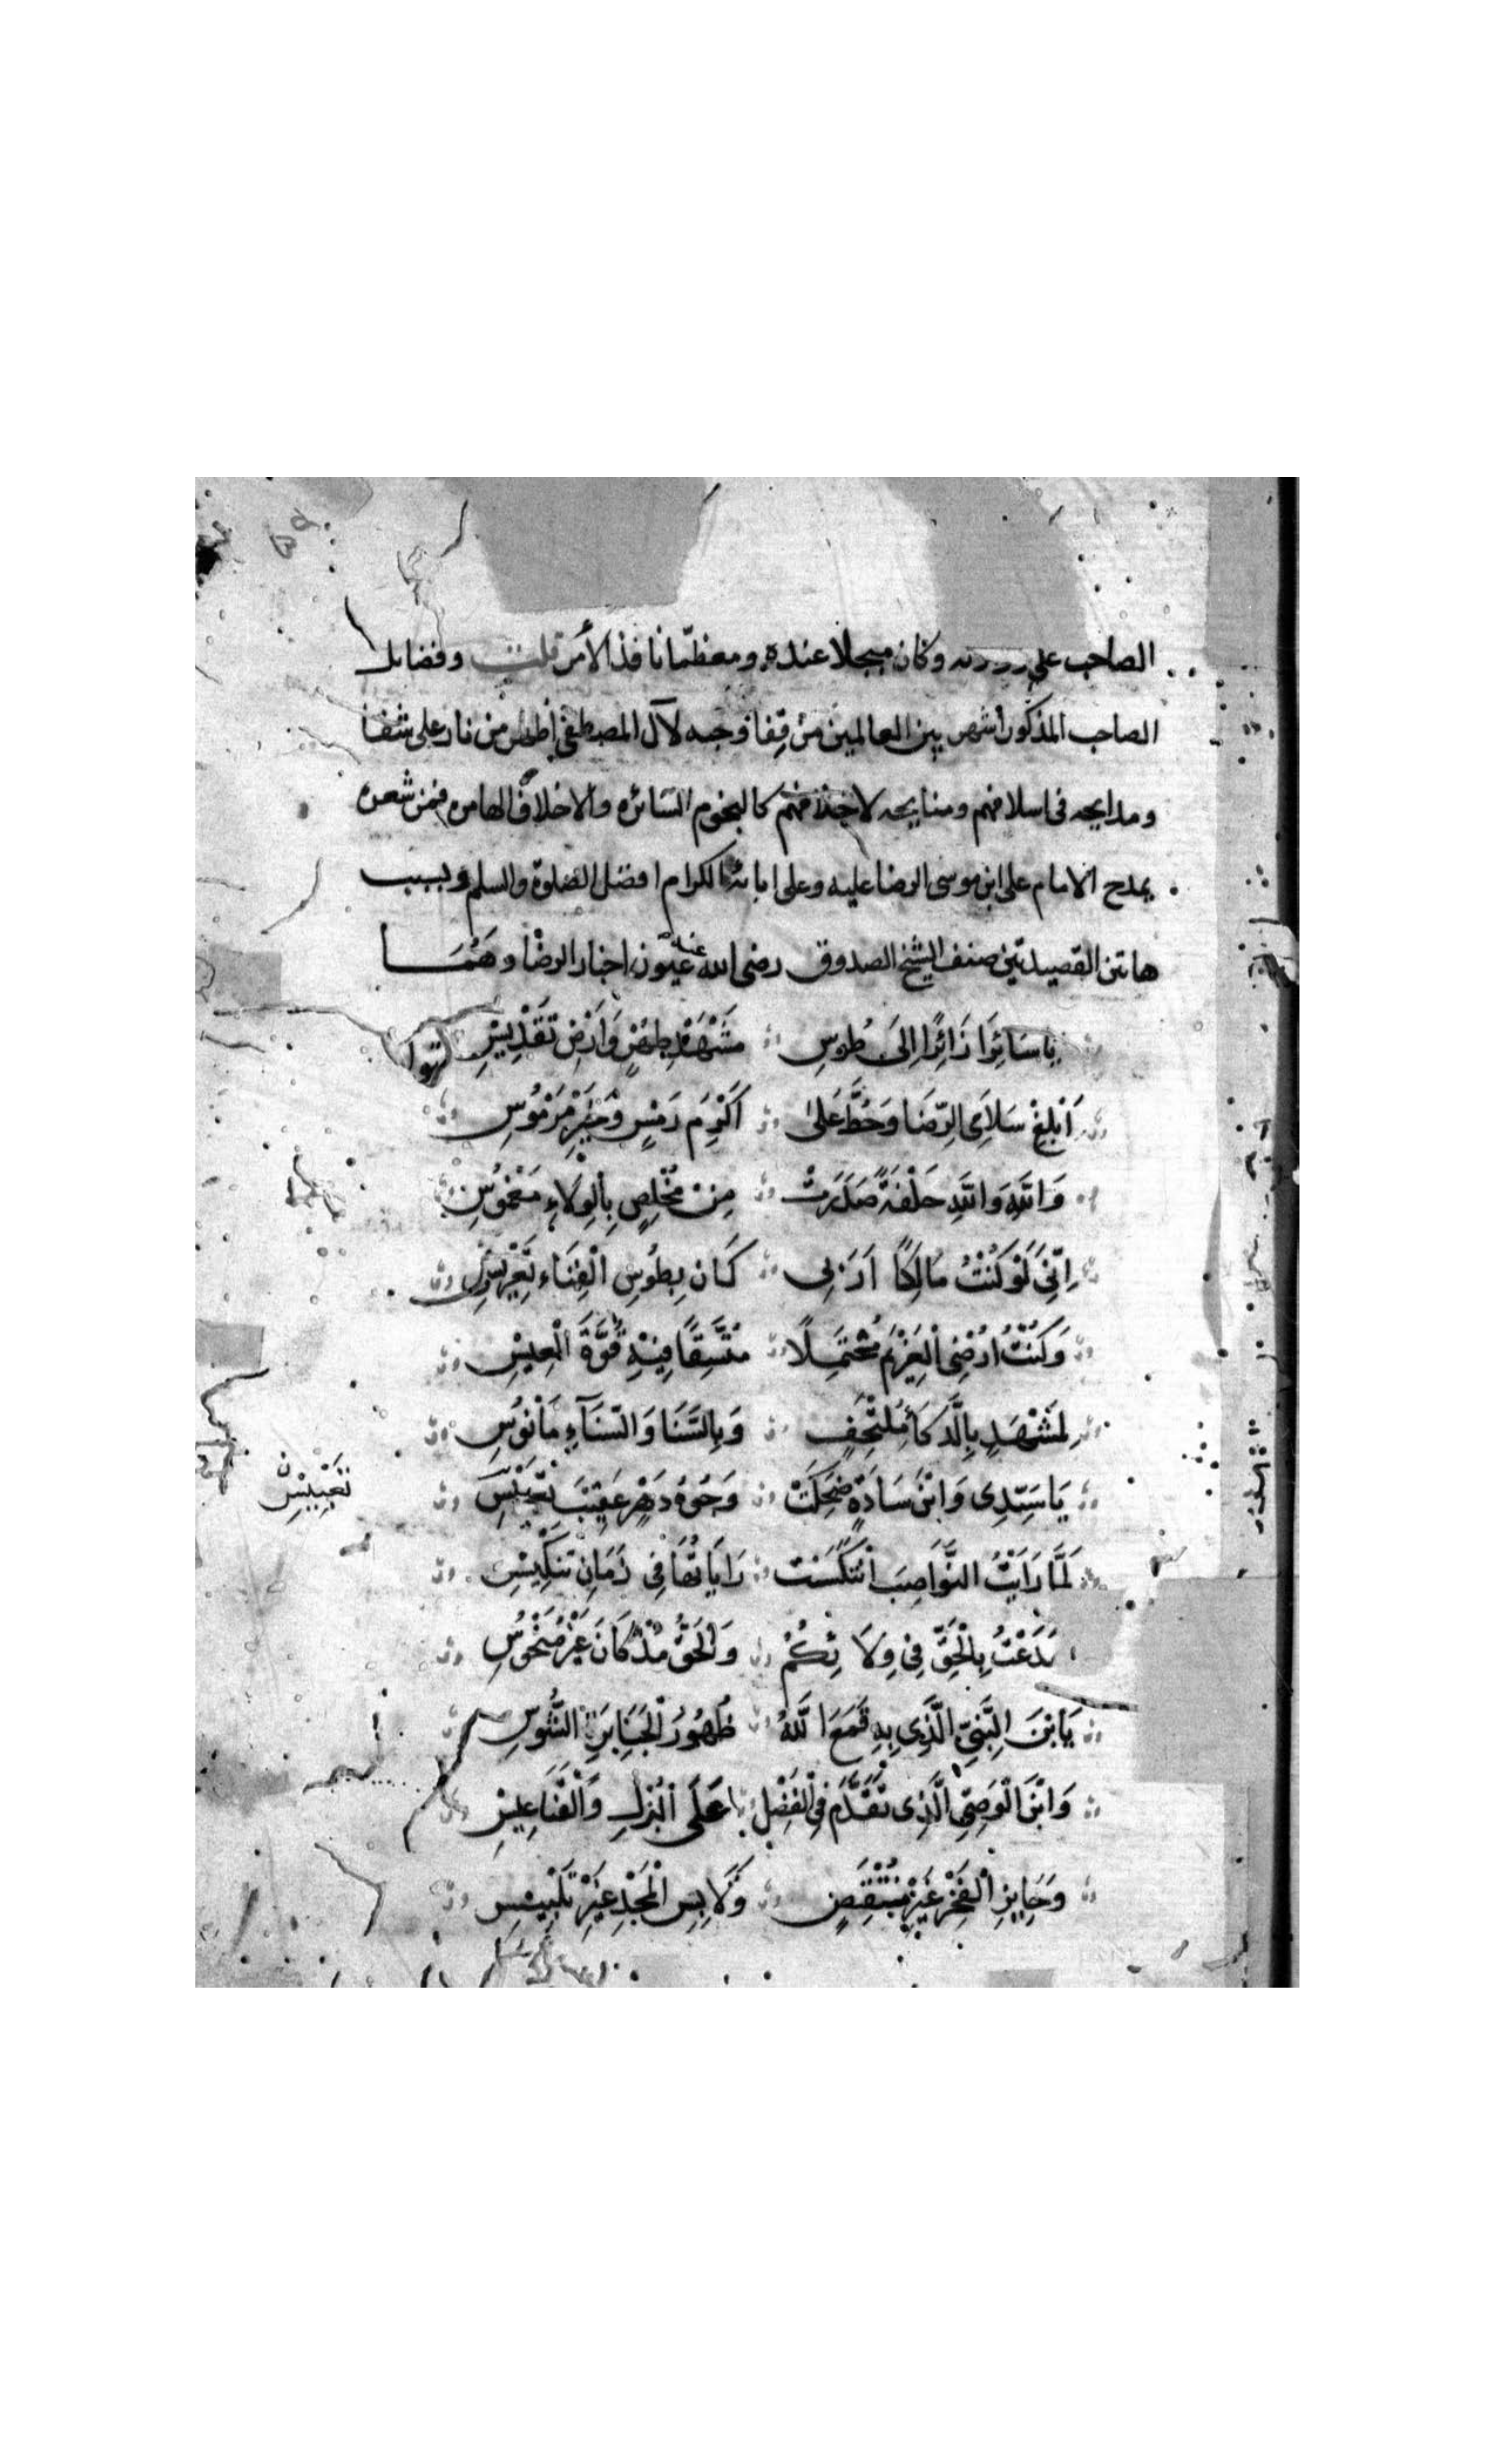 الصاحب على وكان مبجلا عنده ومعظما نافذ الأمر قلت وفضايل
الصاحب المذكور اشهر بين العالمين من قفا ‎وحبه لآل المصطفى اظهر من نار على شفا
ومدايحه فى اسلافهم ومنايحه لاخلافهم كالنجوم السّائره والاخلاف الهامره فمن شعره
يمدح الامام على ابن موسى الرضا عليه وعلى ابائه الكرام افضل الصلوة والسلم وبسبب
هاتين القصيدتين صنف الشيخ الصدوق رضى الله عنه عيون اخبار الرضا وهما
يا سَائِرًا زَائِرًا اِلَى طُوسِ مَشْهَدِ طُهْرٍ وَاَرْضِ تَقْدِيسِ
اَبْلِغْ سَلَامِى الرِّضَا وَحُطَّ عَلَى اَكْرَمِ رَمْسٍ وَخَيْرِ مَرْمُوسِ
وَاللَّهِ وَاللَّهِ حَلْفَةً صَدَرَتْ مِنْ مُخْلِصٍ بِالْوِلَاءِ مَغْمُوسِ
اِنّى لَوْ كُنْتُ مَالِكًا اَرَبِى كَانَ بِطُوسِ الْفِنَاءِ تَعْرِيسِى
وَكُنْتُ اُمْضِى الْعَزِيْمَ مُحْتَمِلًا مُتَّسِقًا فِيْهِ قُوَّةَ الْعِيْسِ
لِمَشْهَدٍ بِالذَّكَاءِ مُلْتَحِفٍ وَبِالسَّنَا وَالسّنَآءِ مَأنُوسِ
يَا سَيّدِى وَابْنَ سَادَةٍ ضَحِكَتْ وُجُوهُ دَهْرٍ عَقِيْبَ تَعْبِيْسِ
تَعْبِيْسْ ن
لَمَّا رَاَيْتُ النَّوَاصِبَ انْتَكَسَت رَايَاتُهَا فِى زَمَانِ تَنْكِيْسِ
صَدَعْتُ بِالْحَقِّ فِى وِلَائِكُمْ وَالْحَقُّ مُذْ كَانَ غَيْرُ مَنْحُوسِ
يَابْنَ النَّبِىِّ الَّذِى بِهِ قَمَعَ اللَّهُ ظُهُورَ الْجَبَابِرِ الشُّوسِ
وَابْنَ الْوَصِىِّ الَّذِى تَقَدَّمَ فِى الْفَضْلِ عَلَى الْبُزْلِ وَالْقَنَاعِيْسِ
وَحَايِزِ الْفَخْرِ غَيْرَ مُنْتَقَصٍ وَلَابِسِ الْمَجْدِ غَيْرَ تَلْبِيْسِ